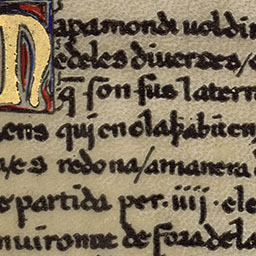 Mapamondi uol di
e deles diuerses/
q̄ son sus la terr
ens qui en ela habiten
es redona/amanera
e partida per·iiij·ele
nuironne de fora dela